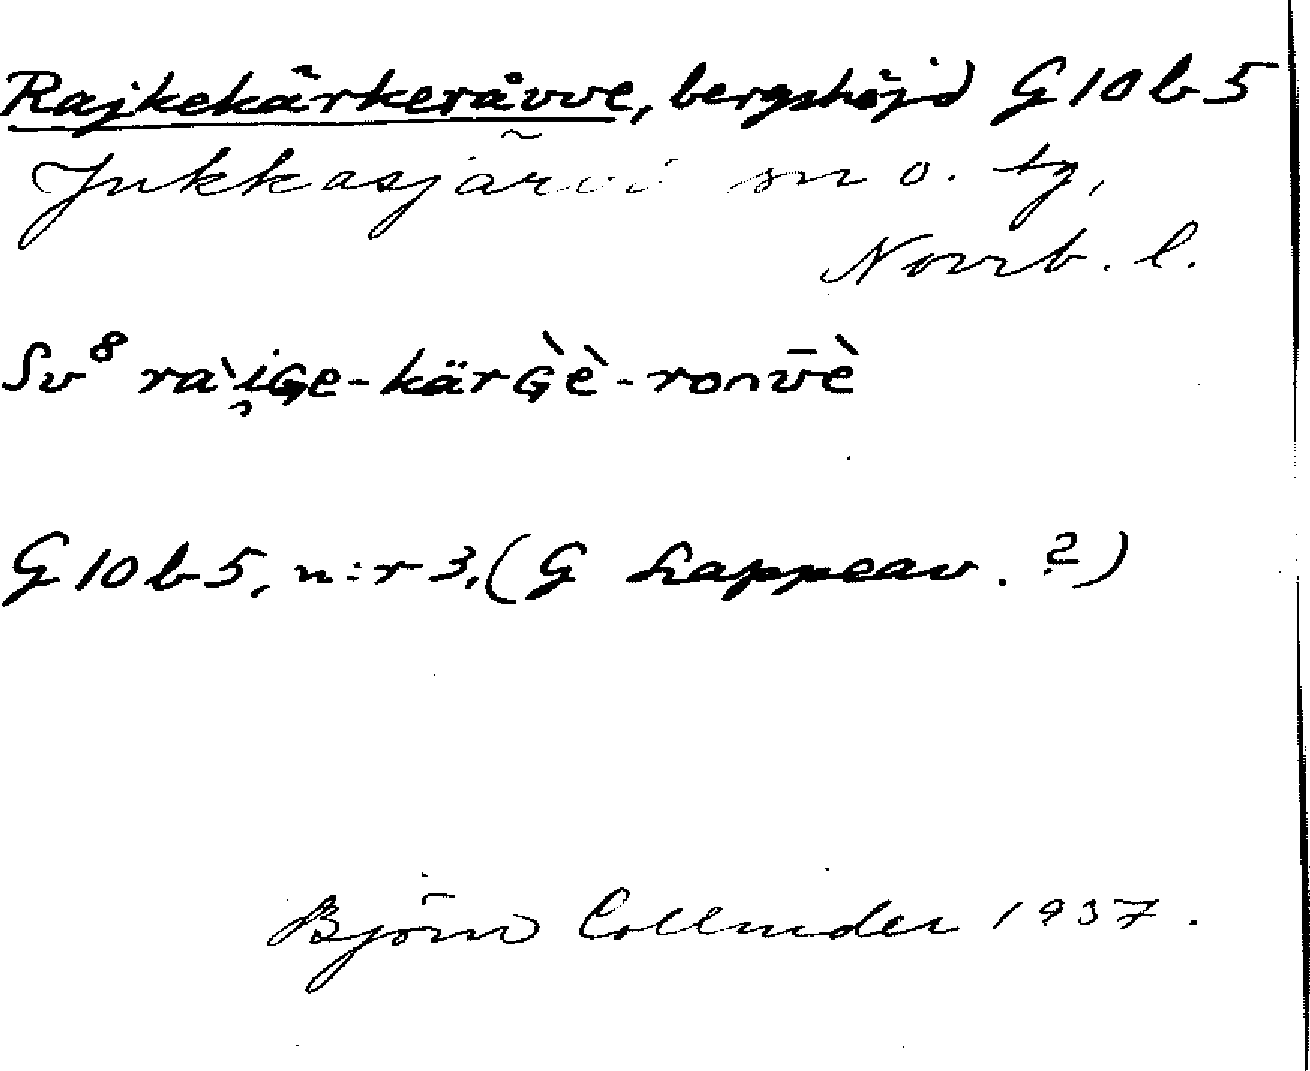 Rajkekärkeråvve, bergshöjd G 10 b 5
Jukkasjärvi sn o. tg,
Norrb. l.
Sv⁸ ra`i̯Ge-kärG̀è-ronv̄è
G 10 b 5, n:r 3. (G Lappeav. ?)
Björn Collinder 1937.